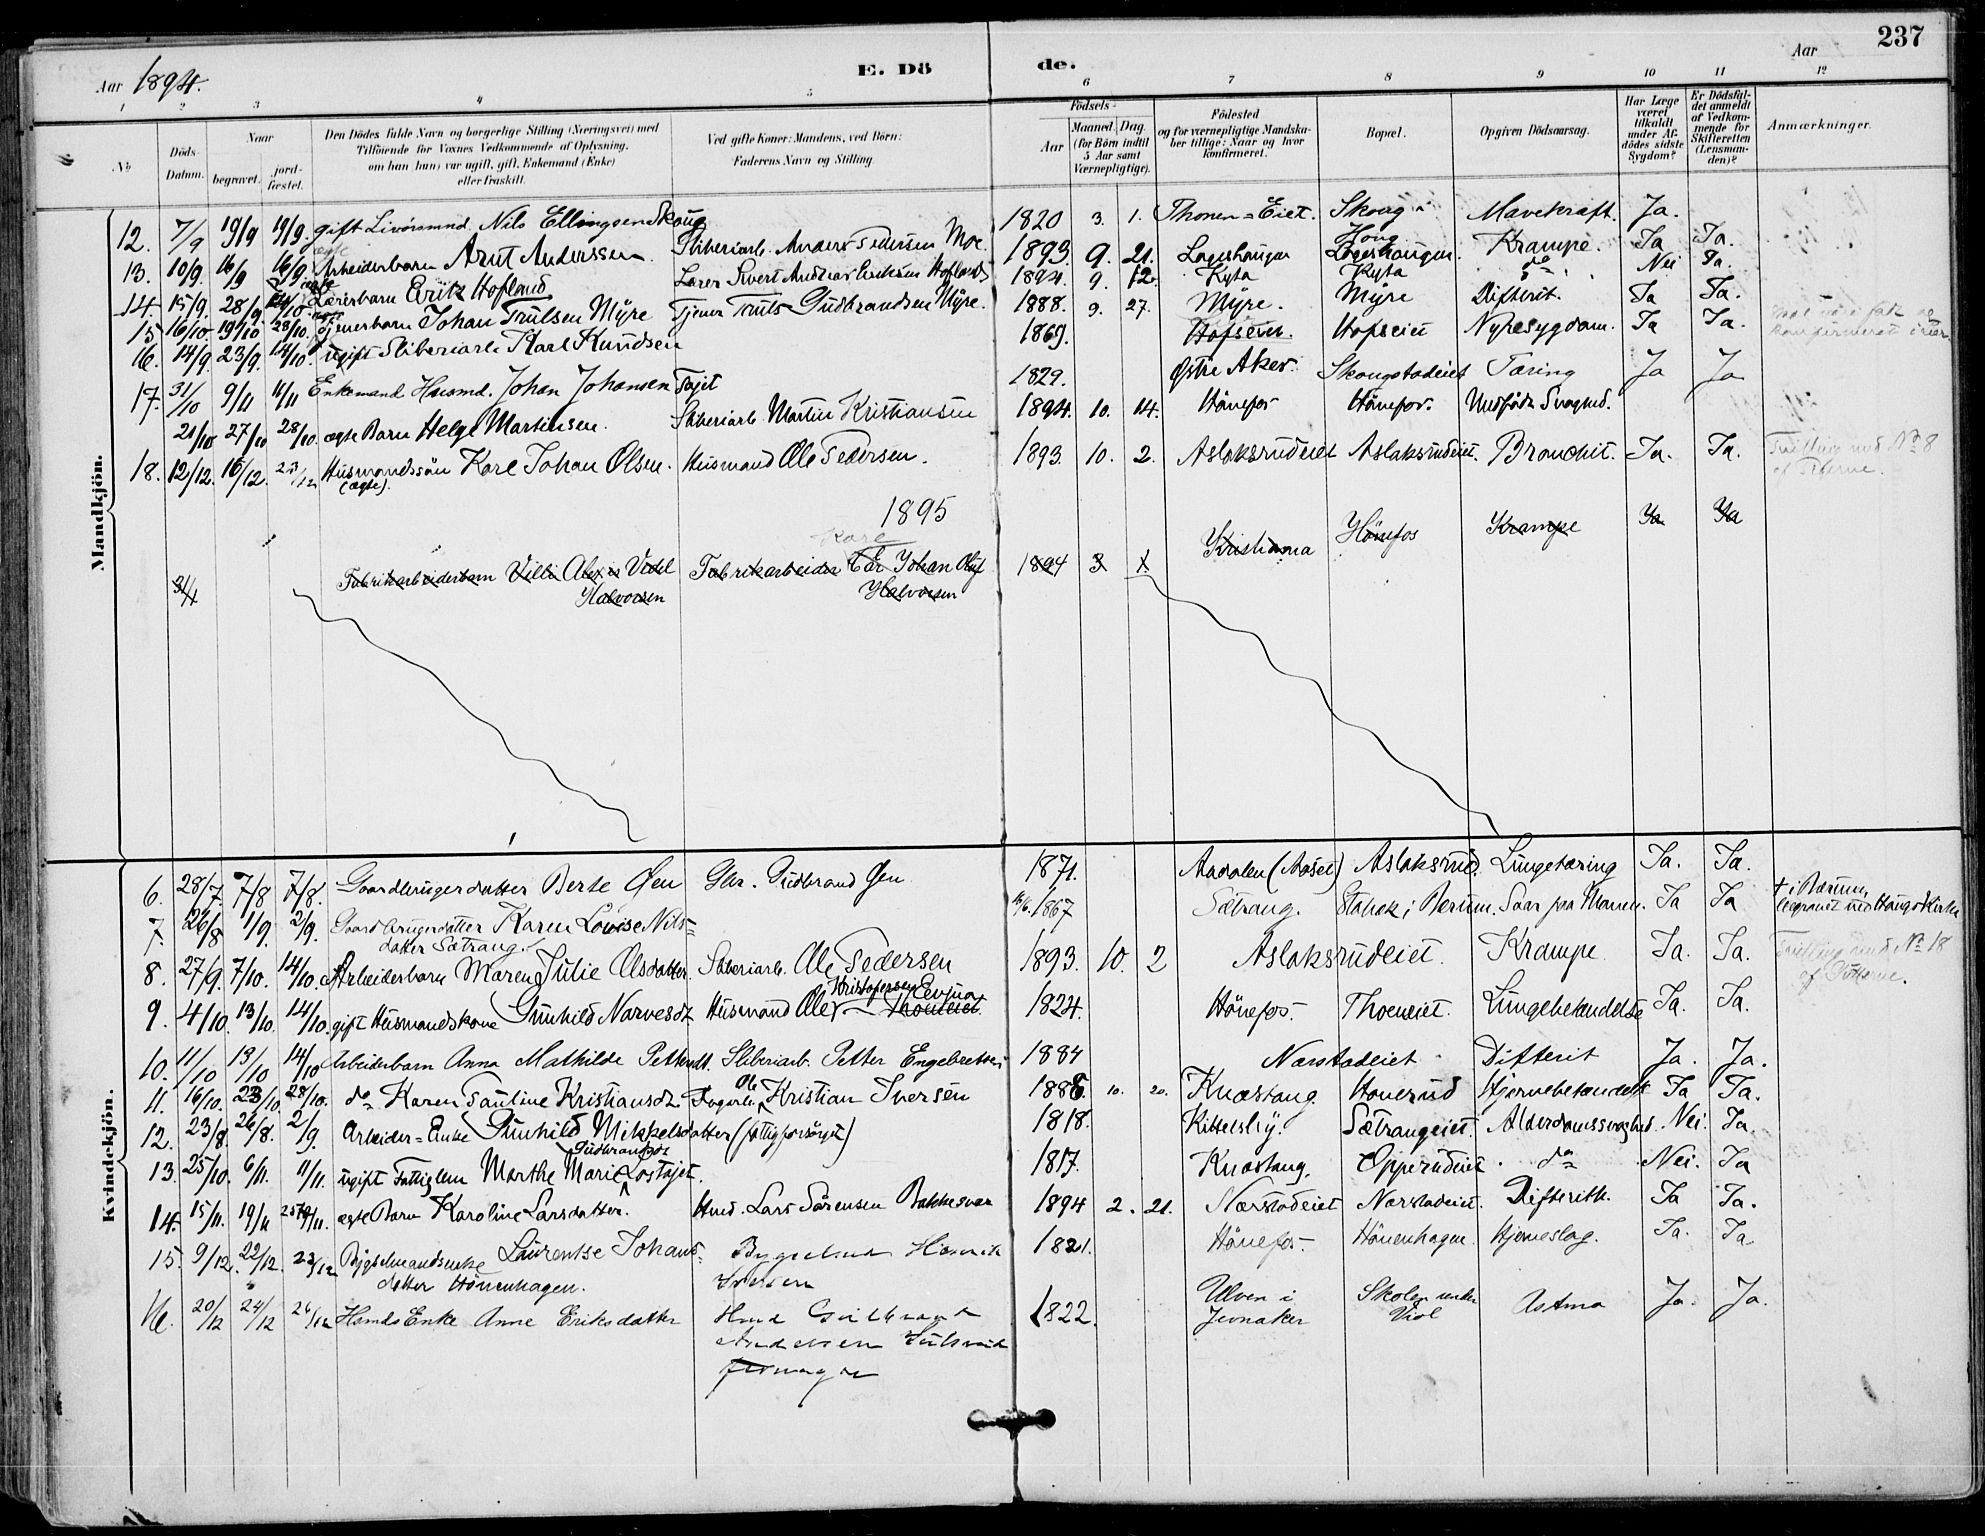 237
Aar 1894.
E. Dö de.
Aar
1 2 3 4 5 6 7 8 9 10 11 12
No
Döds-Datum.
Naar
begravet.
jord-fæstet.
Den Dödes fulde Navn og borgerlige Stilling (Næringsvei) med
Tilföiende for Voxnes Vedkommende af Oplysning,
om han (hun) var ugift, gift, Enkemand (Enke)
eller fraskilt.
Ved gifte Koner: Mandens, ved Börn:
Faderens Navn og Stilling
Födsels-
Aar
Maaned. Dag.
(for Börn indtil
5 Aar samt
Værnepligtige).
Födested
og for værnepligtige Mandska-
ber tillige: Naar og hvor
konfirmeret.
Bopæl.
Opgiven Dödsaarsag.
Har Læge
været
tilkaldt
under Af-
dödes sidste
Sygdom?
Er Dödsfal-
det anmeldt
af Vedkom-
mende for
Skifteretten
(Lensman-
den)?
Anmærkninger.
Mandkjön.
12. 7/9 19/9 19/9. gift Livöremnd Nils Ellingsen Skoug 1820 3. 1. Thonen=Eiet. Skoug Mavekræft. Ja.
13. 10/9. 16/9 16/9. ægte Arbeiderbarn Arnt Anderssen Sliberiarb. Anders Pedersen Moe. 1893. 9. 21. Lageshaugen Houg Lageshaugen Krampe. Ja Ja.
14. 15/9. 28/9. 14/10. ægte Lærerbarn Erik Hofland Lærer Sivert Andreas Eriksen Hofland 1894. 9. 12. Kyta Kyta do Nei Ja.
15 16/10. 19/10. 28/10. Tjenerbarn Johan Trulsen Myre Tjener Truls Gudbrandsen Myre. 1888. 9. 27. Myre. Myre Difterit. Ja Ja.
16. 14/9. 23/9. 14/10. ugift Sliberiarb Karl Knudsen 1869. Hofseiet. Hofseiet Nyresygdom. Ja Ja.
17. 31/10 9/11 11/11 Enkemand Husmd. Johan Johansen Tajet 1829. Østre Aker. Skougstadeiet Tæring Ja Ja
21/10 27/10 28/10. ægte Barn Helge Martinsen. Sliberiarb Martin Kristiansen 1894. 10. 14. Hönefos Hönefos. Medfödt Svaghed.
18. 12/12. 16/12. 23/12 Husmandssön Karl Johan Olsen. (ægte). Husmand Ole Pedersen. 1893. 10. 2. Aslaksrudeiet Aslaksrudeiet. Bronchit. Ja. Ja. Tvilling med No 8
af Pigerne.
1895
Kare
31/1 Fabrikarbeiderbarn Villi Alexis Videl Halvorsen Fabrikarbeider Johan Oluf Halvorsen 1894 3 1. Kristiania Hönefos Krampe Ja Ja
Kvindekjön.
6. 28/7. 7/8 7/8. Gaardbrugerdatter Berte Øen Gbr. Gudbrand Øen 1871. Aadalen (Aasel) Aslaksrud. Lungetæring Ja. Ja.
7. 26/8 1/9. 2/9. Gaardbrugerdatter Karen Lovise Nils=
datter Sætrang. 1867 Sætrang. Stabæk i Bærum. Saar paa Maven. Ja Ja † i Bærum,
begravet ved Haugs Kirke
8. 27/9. 7/10. 14/10. Arbeiderbarn Maren Julie Olsdatter. Sliberiarb. Ole Pedersen 1893. 10. 2 Aslaksrudeiet. Krampe. Ja. Ja. Tvilling med No 18
af Gutterne.
9. 4/10. 13/10. 14/10. gift Husmandskone Gunhild Narvesdt. Husmand Ole Kristofersen Thoneiet. 1824. Hönefos. Thoeneiet. Lungebetændelse Ja. Ja.
10. 11/10 13/10 14/10 Arbeiderbarn Anna Mathilde Pettersdt. Sliberiarb. Petter Engebretsen 1884 Nærstadeiet Difterit Ja. Ja.
11. 16/10. 23/10 28/10. do Karen Pauline Kristiansdt. Ole Kristian Iversen 1886. 10. 20. Knæstang Honerud Hjernebetændelse Ja Ja.
12. 23/8. 26/8. 2/9. Arbeider=Enke Gunhild Mikkelsdatter (fattigforsörget) 1818. Kittelsby. Sætrangeiet. Alderdomssvaghed. Nei. Ja.
13. 25/10. 6/11. 11/11. ugift Fattiglem Marthe Marie Gudbrandsdt Lostajet. 1817. Knæstang. Opperudeiet do Nei. Ja
14. 15/11. 19/11 25/11. ægte Barn Karoline Larsdatter. Hmd. Lars Sörensen Bakkesveen 1894 2. 21. Nærstadeiet Nærstadeiet. Difterith. Ja Ja.
15. 9/12. 22/12. 23/12 Bygselmandsenke Laurentse Johans=
datter Hönenhagen. 1821. Hönefos. Hönenhagen. Hjerneslag. Ja. Ja
16. 20/12 24/12 26/12 Hsmds Enke Anne Eriksdatter 1822. Ulven i
Jevnaker Skolen under
Viol Astma Ja. Ja.